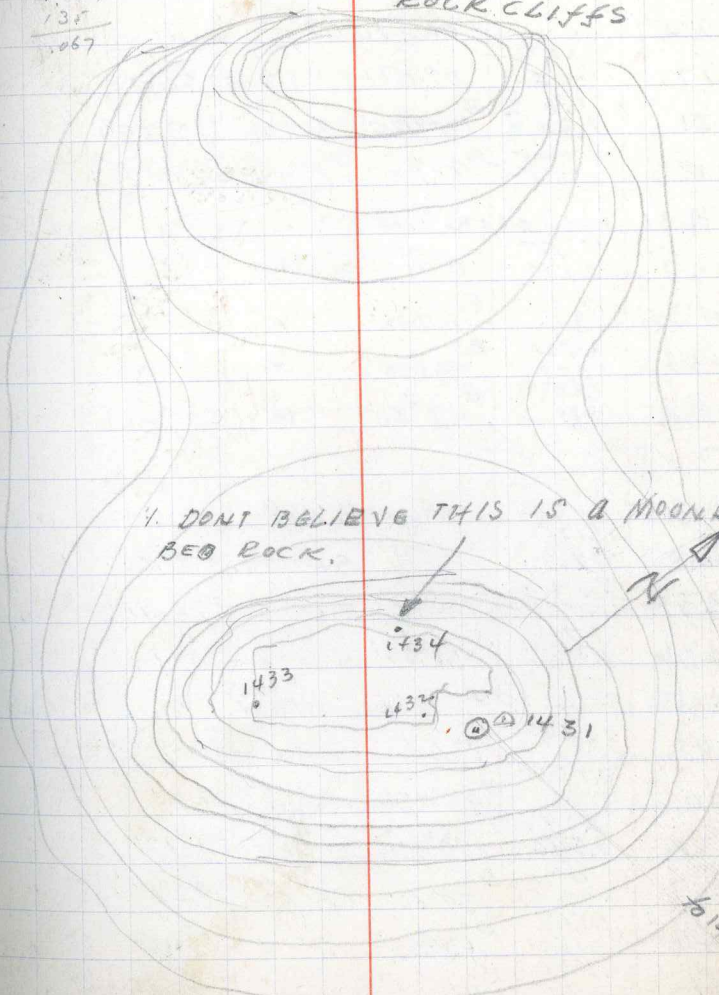 135
.067
ROCK CLIFFS
I. DONT BELIEVE THIS IS A
BED ROCK.
N
1434
1433
1432
1431